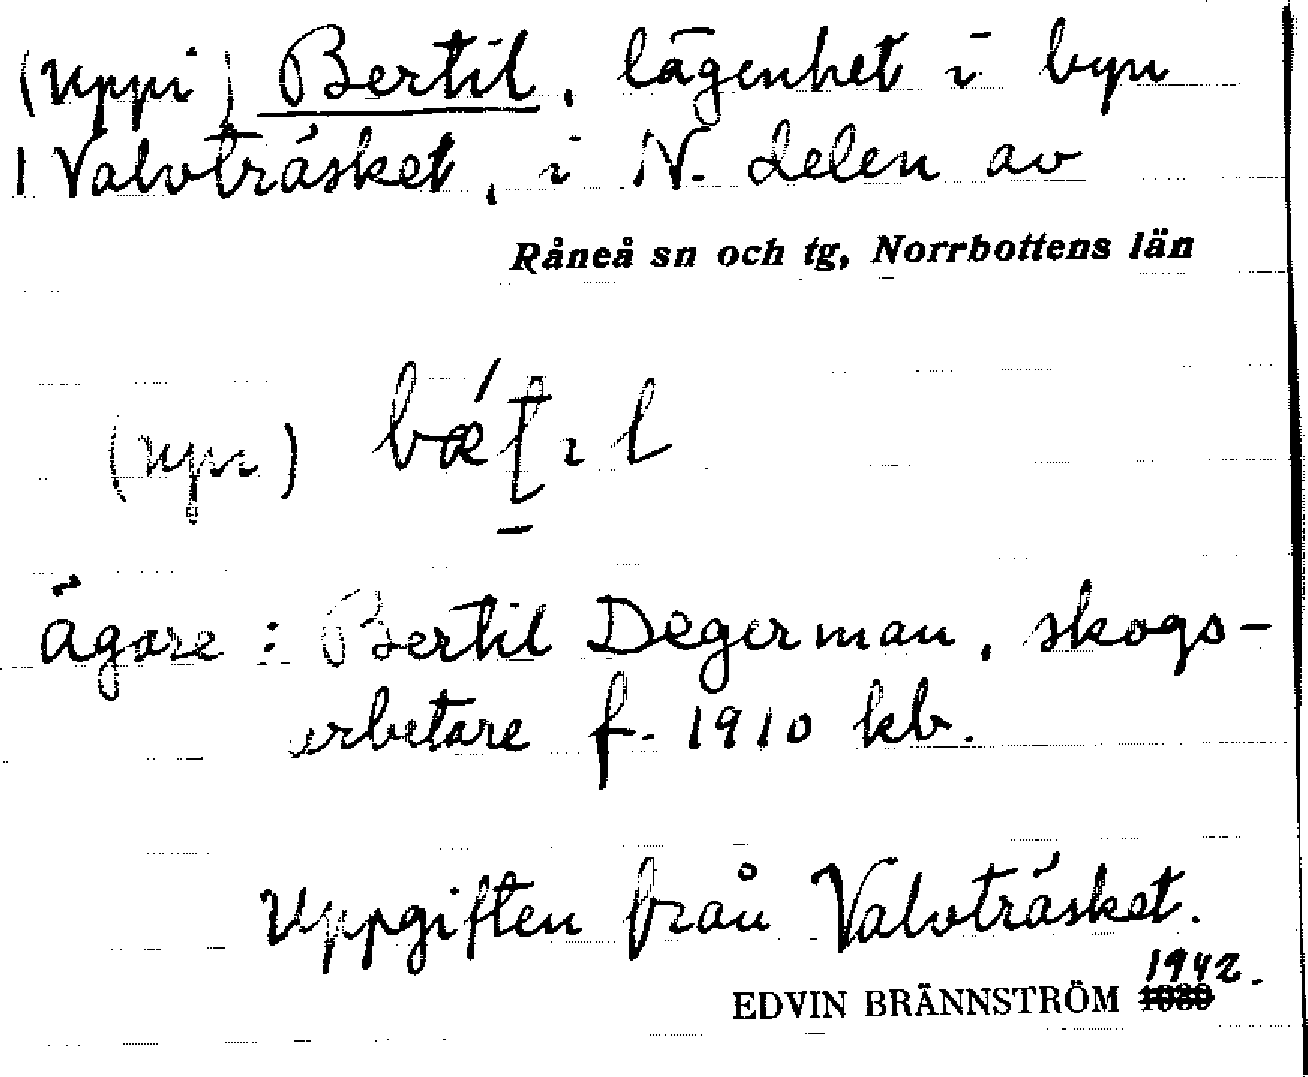 (uppi) Bertil, lägenhet i byn
Valvträsket, i N. delen av
Råneå sn och tg, Norrbottens län
(upi) bǽʈil
Ägare: Bertil Degerman, skogs-
arbetare f. 1910 kb.
Uppgiften från Valvträsket.
1942.
EDVIN BRÄNNSTRÖM 1939